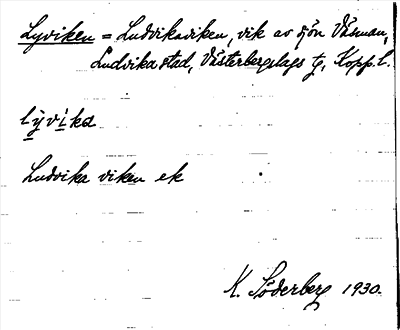 Lyviken = Ludvikaviken, vik av sjön Väsman,
Ludvika stad, Västerbergslags tg, Kopp. l.
lỳvi̍ka
Ludvika viken ek
K. Söderberg 1930.